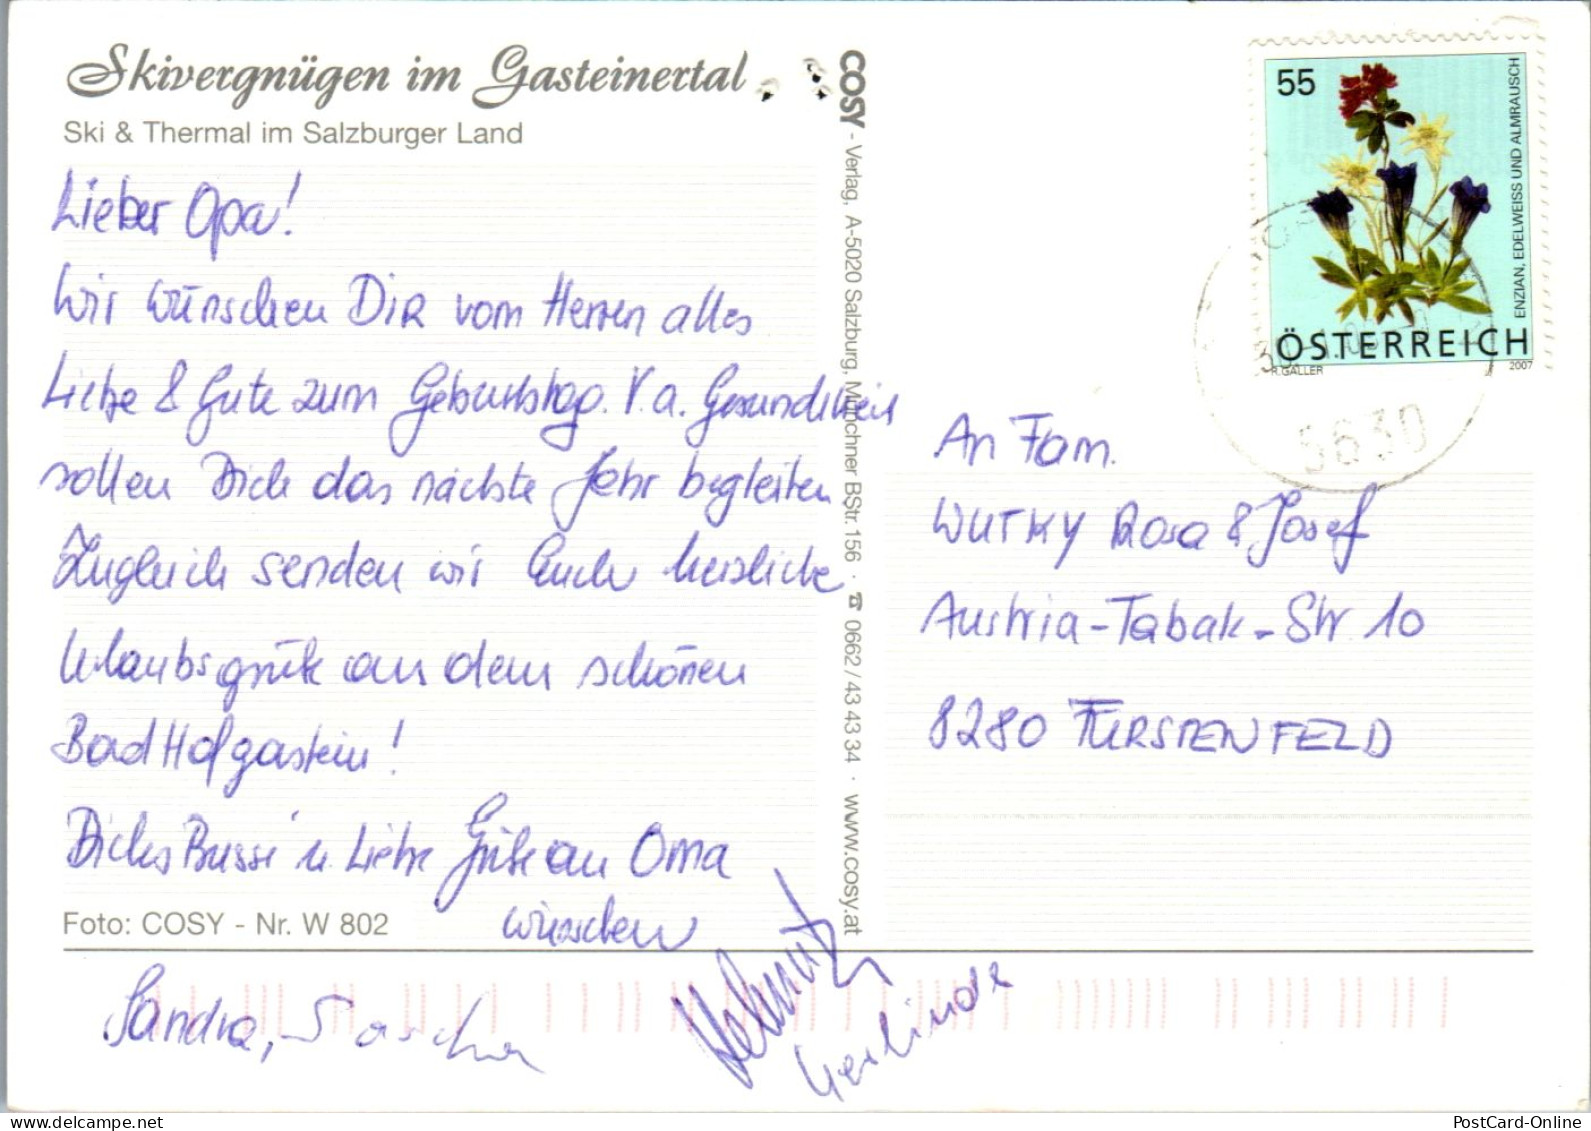 Skivergnügen im Gasteinertal
Ski & Thermal im Salzburger Land
Lieber Opa!
Wir wünschen Dir vom Herren alles
Liebe & Gute zum Geburtstag. V.a. Gesundheit
sollen Dich das nächste Jahr begleiten
Zugleich senden wir Euch herzliche
Urlaubsgrüße aus dem schönen
Bad Hofgastein!
Dickes Bussi u. Liebe Grüße an Oma
wünschen
Foto: COSY - Nr. W 802
Sandra, Sascha
Helmut
Gerlinde
COSY - Verlag, A-5020 Salzburg, Münchner BStr. 156 · ☎ 0662/43 43 34 · www.cosy.at
55
ENZIAN, EDELWEISS UND ALMRAUSCH
ÖSTERREICH
R. GALLER
2007
5630
An Fam.
WUTKY Rosa & Josef
Austria-Tabak-Str 10
8280 FÜRSTENFELD
PostCard-Online